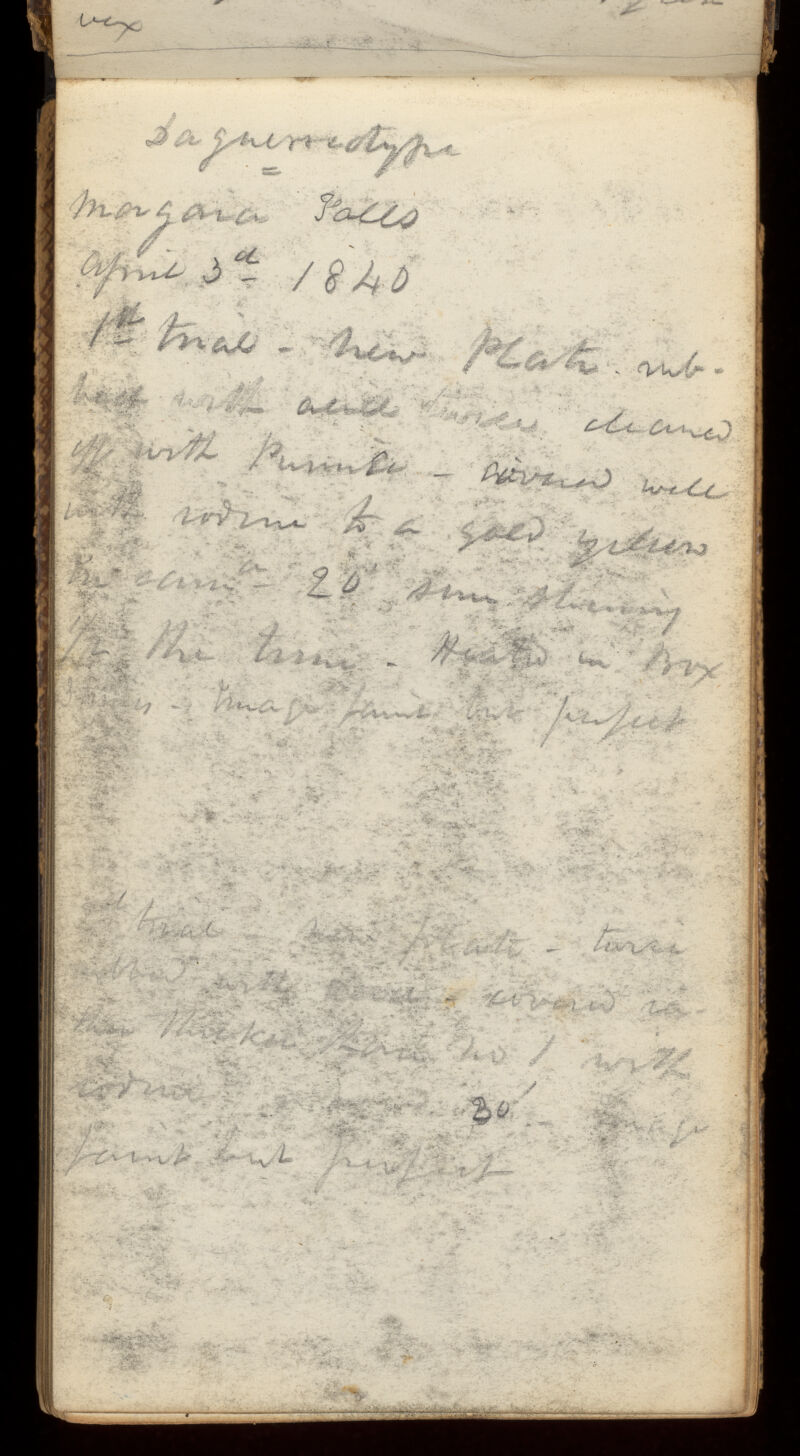 vex
Daguerreotype
Niagara Falls
April 3d 1840
1st trial - new Plate. rub-
bed with acid twice cleaned
off with Pumice - covered well
with iodine to a gold yellow
In cama 20' sun shining
1/2 the time - Heated in Box
Image faint but perfect
trial - new plate - twice
rubbed with acid - covered ra-
ther thicker than No 1 with
iodine 30' - Image
faint but perfect